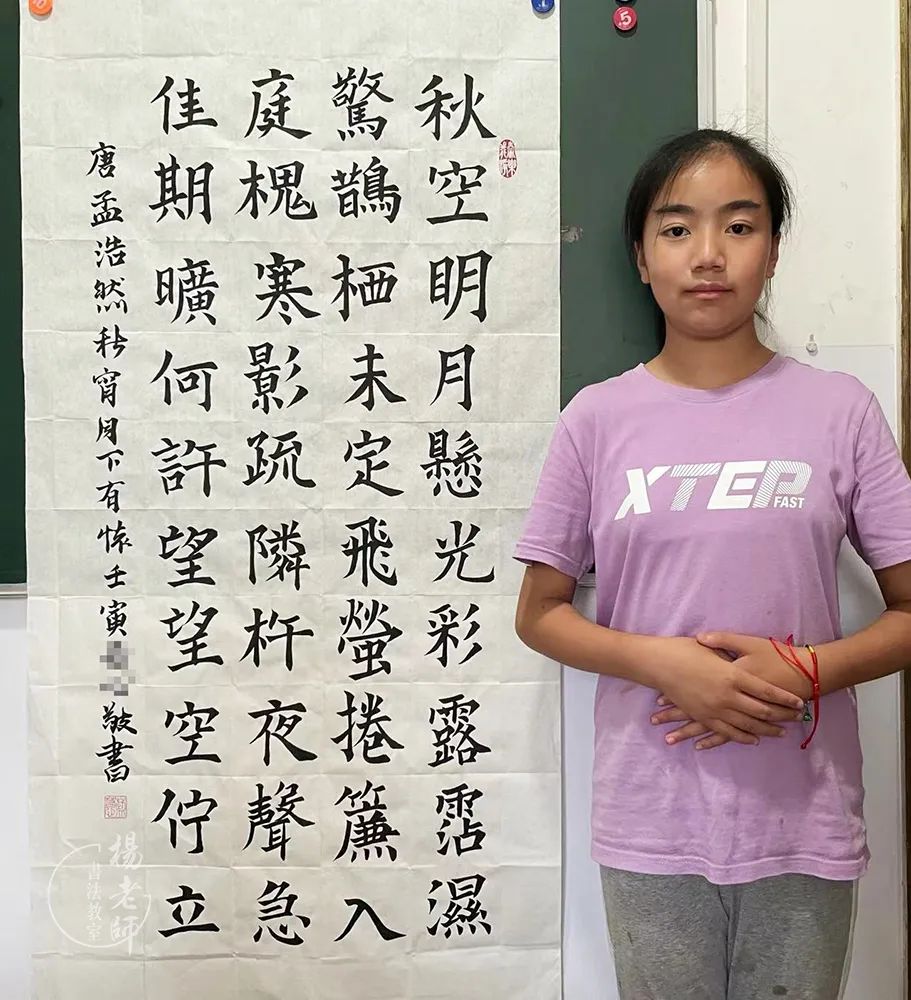 秋空明月懸光彩露霑濕
驚鵲栖未定飛螢捲簾入
庭槐寒影疏隣杵夜聲急
佳期曠何許望望空佇立
唐孟浩然秋宵月下有懷壬寅敬書
XTEP
FAST
楊老師
書法教室
.5